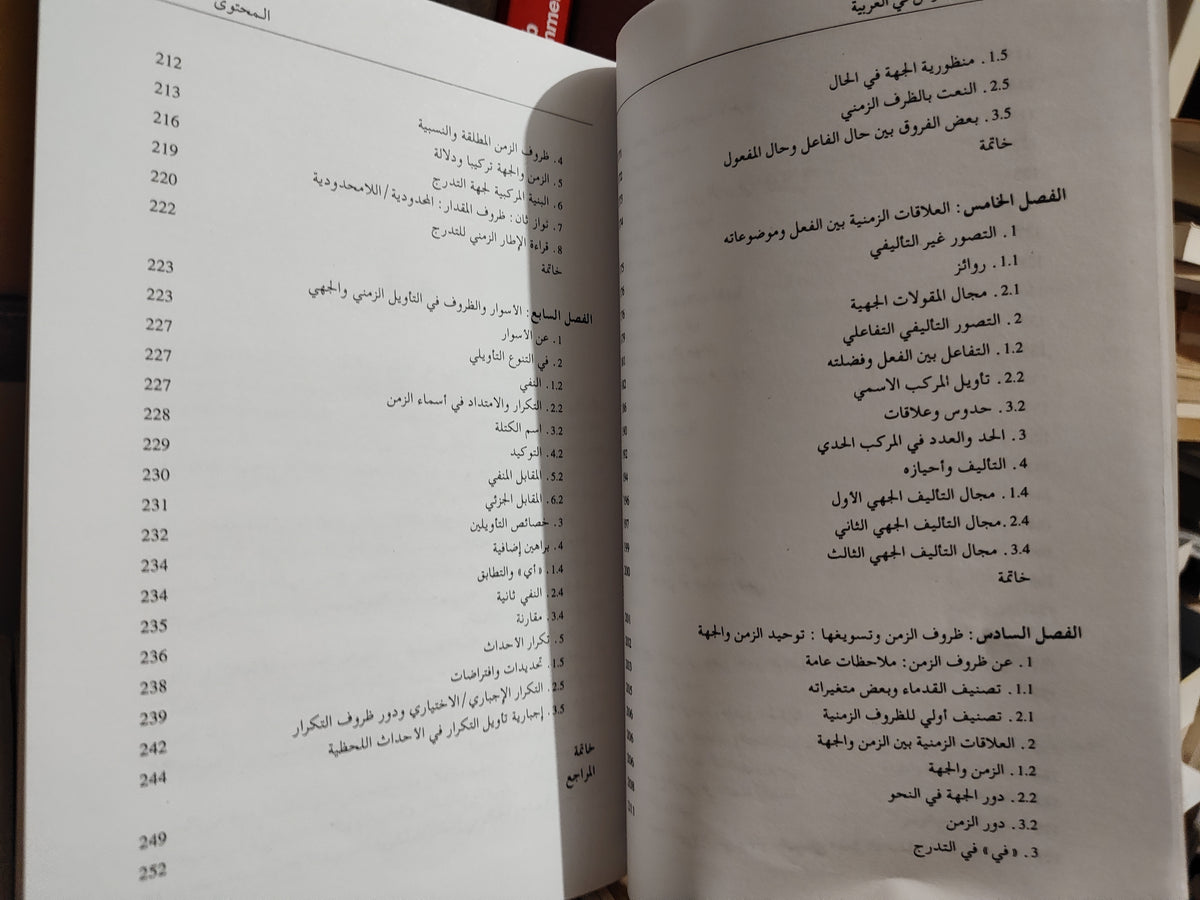 في العربية
1.5. منظورية الجهة في الحال
2.5. النعت بالظرف الزمني
3.5. بعض الفروق بين حال الفاعل وحال المفعول
خاتمة
الفصل الخامس: العلاقات الزمنية بين الفعل وموضوعاته
1. التصور غير التأليفي
1.1. روائز
2.1. مجال المقولات الجهية
2. التصور التأليفي التفاعلي
1.2. التفاعل بين الفعل وفضلته
2.2. تأويل المركب الاسمي
3.2. حدوس وعلاقات
3. الحد والعدد في المركب الحدي
4. التأليف وأحيازه
1.4. مجال التأليف الجهي الأول
2.4. مجال التأليف الجهي الثاني
3.4. مجال التأليف الجهي الثالث
خاتمة
الفصل السادس: ظروف الزمن وتسويغها: توحيد الزمن والجهة
1. عن ظروف الزمن: ملاحظات عامة
1.1. تصنيف القدماء وبعض متغيراته
2.1. تصنيف أولي للظروف الزمنية
2. العلاقات الزمنية بين الزمن والجهة
1.2. الزمن والجهة
2.2. دور الجهة في النحو
3.2. دور الزمن
3. «في» في التدرج
المحتوى
4. ظروف الزمن المطلقة والنسبية 212
5. الزمن والجهة تركيبا ودلالة 213
6. البنية المركبية لجهة التدرج 216
7. تواز ثان: ظروف المقدار: المحدودية/اللامحدودية 219
8. قراءة الإطار الزمني للتدرج 220
خاتمة 222
الفصل السابع: الأسوار والظروف في التأويل الزمني والجهي 223
1. عن الأسوار 223
2. في التنوع التأويلي 227
1.2. النفي 227
2.2. التكرار والامتداد في أسماء الزمن 227
3.2. اسم الكتلة 228
4.2. التوكيد 229
5.2. المقابل المنفي 230
6.2. المقابل الجزئي 231
3. خصائص التأويلين 232
4. براهين إضافية 234
1.4. «أي» والتطابق 234
2.4. النفي ثانية 235
3.4. مقارنة 236
5. تكرار الأحداث 238
1.5. تحديدات وافتراضات 239
2.5. التكرار الإجباري/الاختياري ودور ظروف التكرار 242
3.5. إجبارية تأويل التكرار في الأحداث اللحظية 244
خاتمة 249
المراجع 252